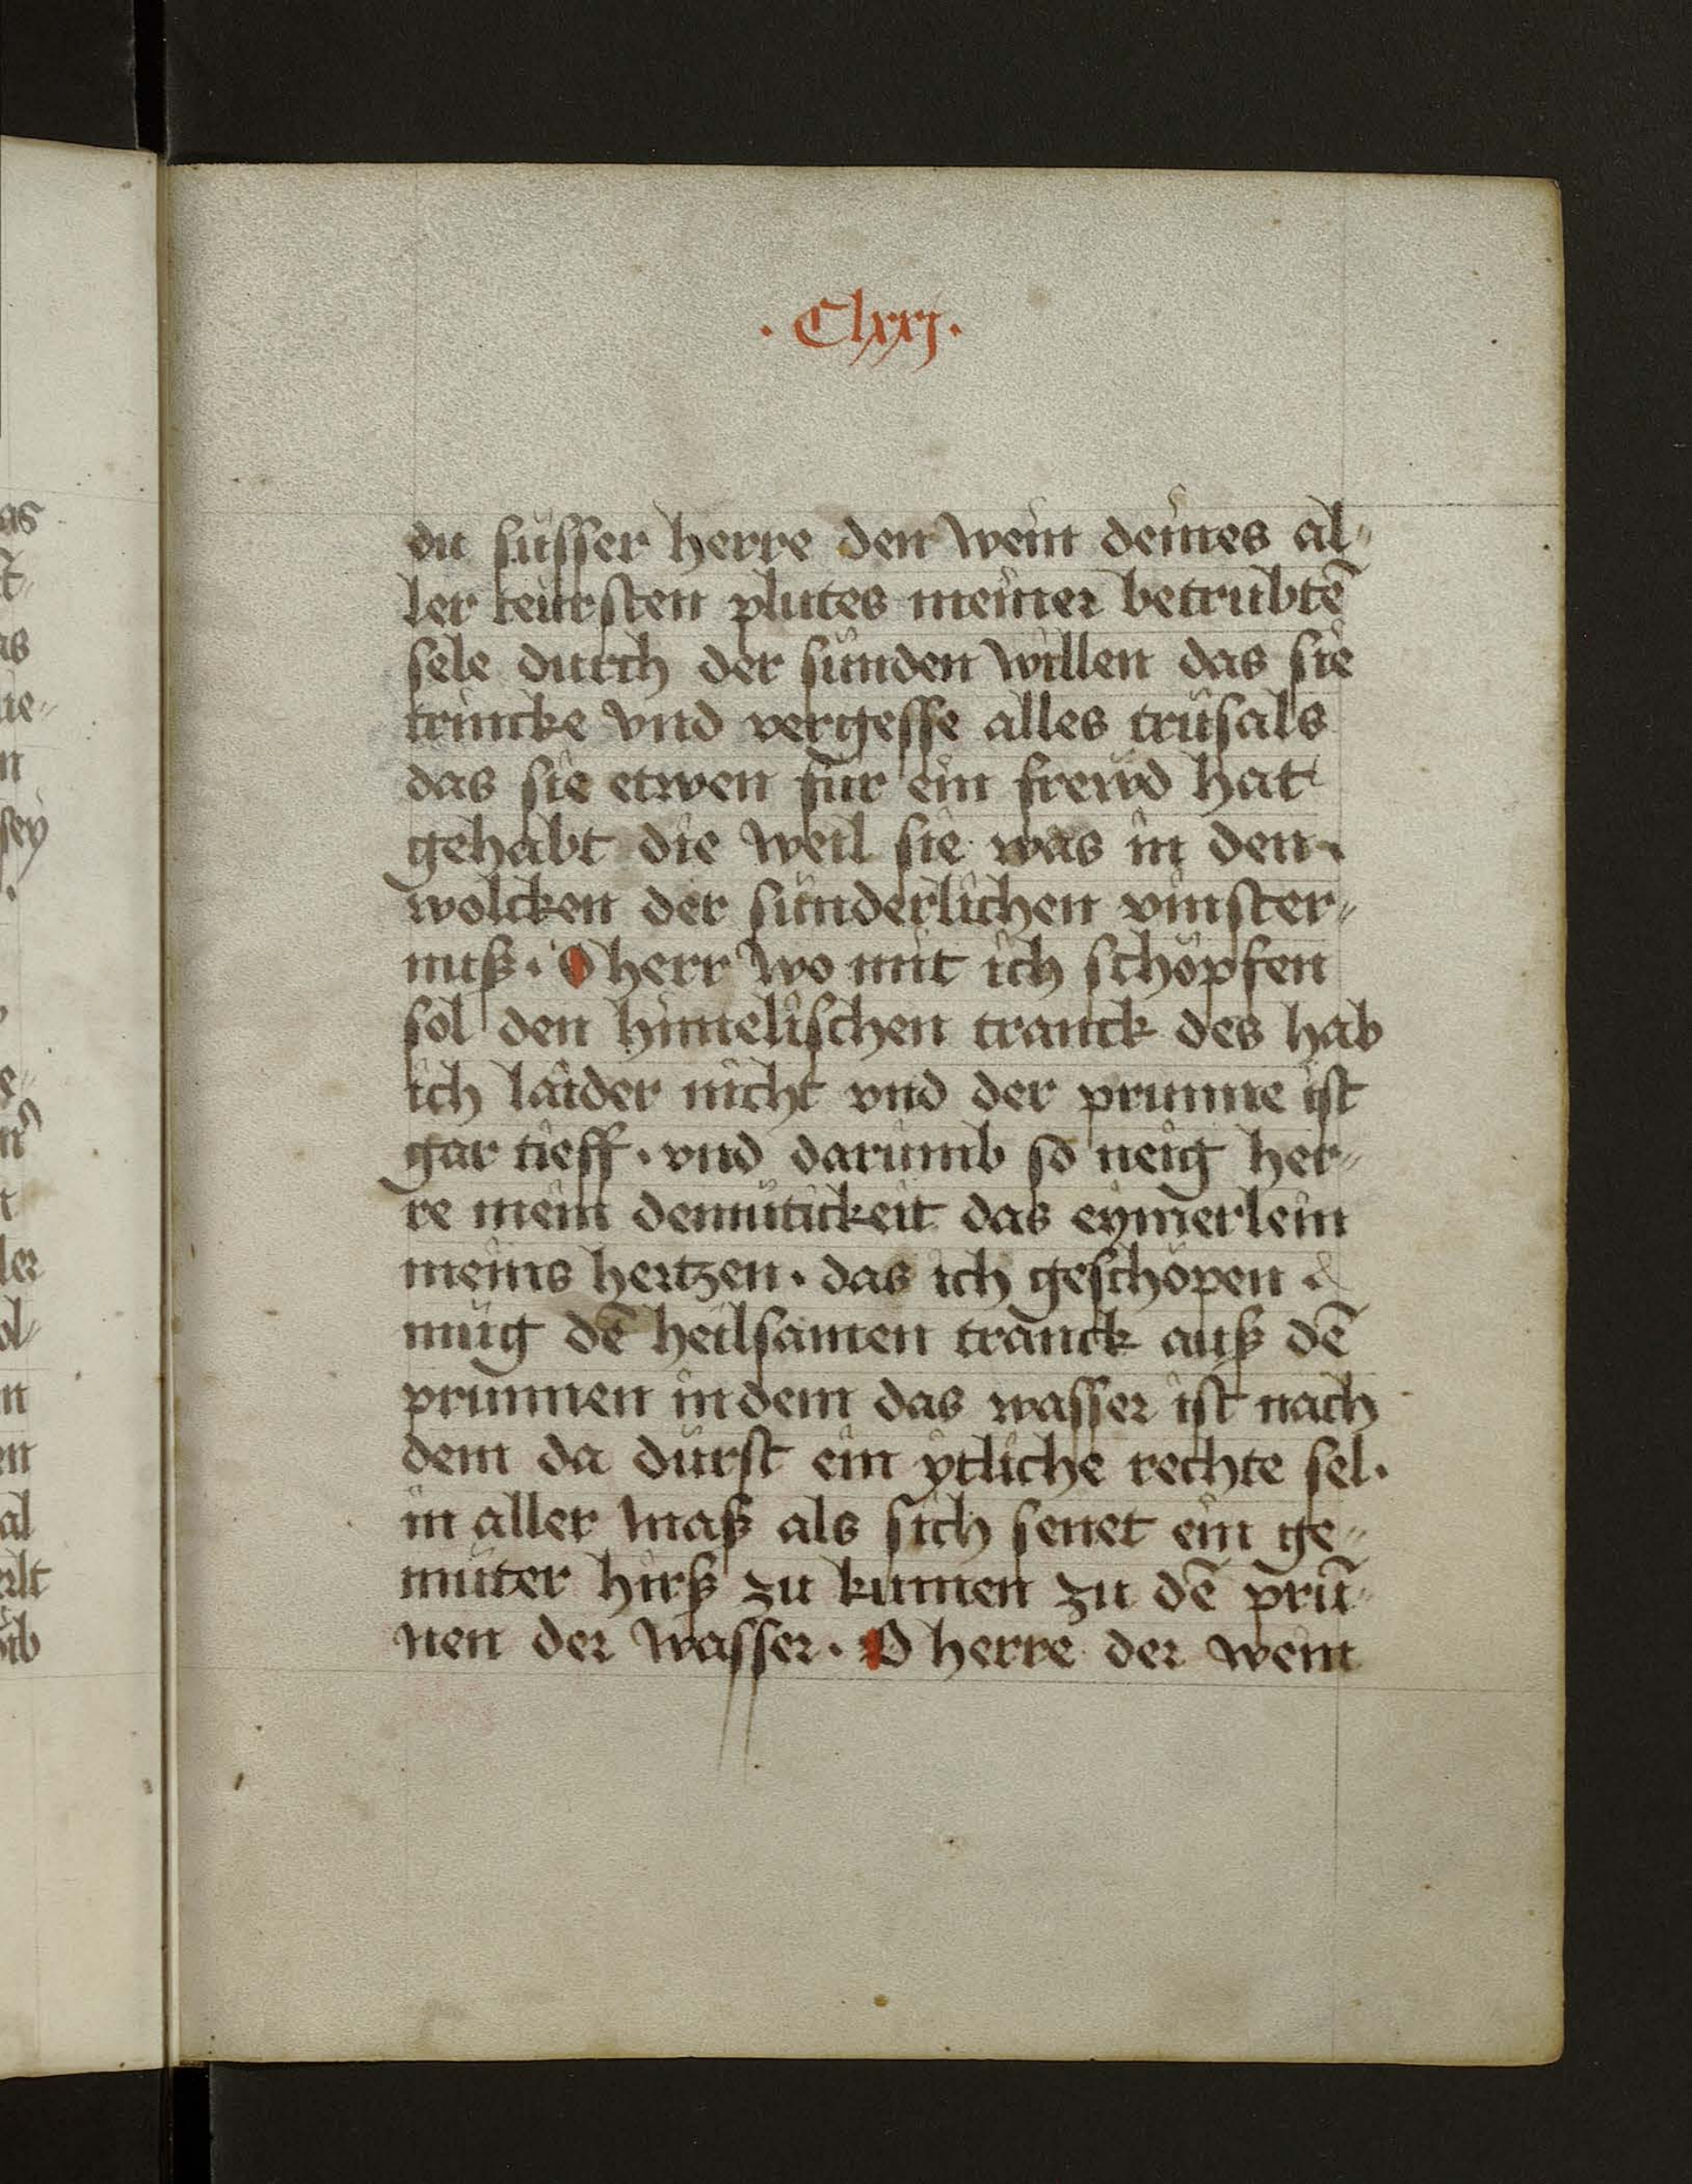 · Clxxj ·
du süsser herre den wein deines al⸗
ler teursten plutes meiner betrubtē
sele durch der sünden willen das sie
trincke vnd vergesse alles trüsals
das sie etwen für ein frewd hat
gehabt die weil sie was in den
wolcken der sünderlichen vinster⸗
niß · O herr wo mit ich schöpfen
sol den himelischen tranck des hab
ich laider nicht vnd der prunne ist
gar tieff · vnd darumb so neig her⸗
re mein demütickeit das eymerlein
meins hertzen · das ich geschöpen
müg dē heilsamen tranck auß dē
prunnen in dem das wasser ist nach
dem da dürst ein ytliche rechte sel ·
in aller maß als sich senet ein ge⸗
müter hirß zu kumen zu dē prū⸗
nen der wasser · O herre der wein
as
as
ie⸗
n
sey
ler
n
en
al